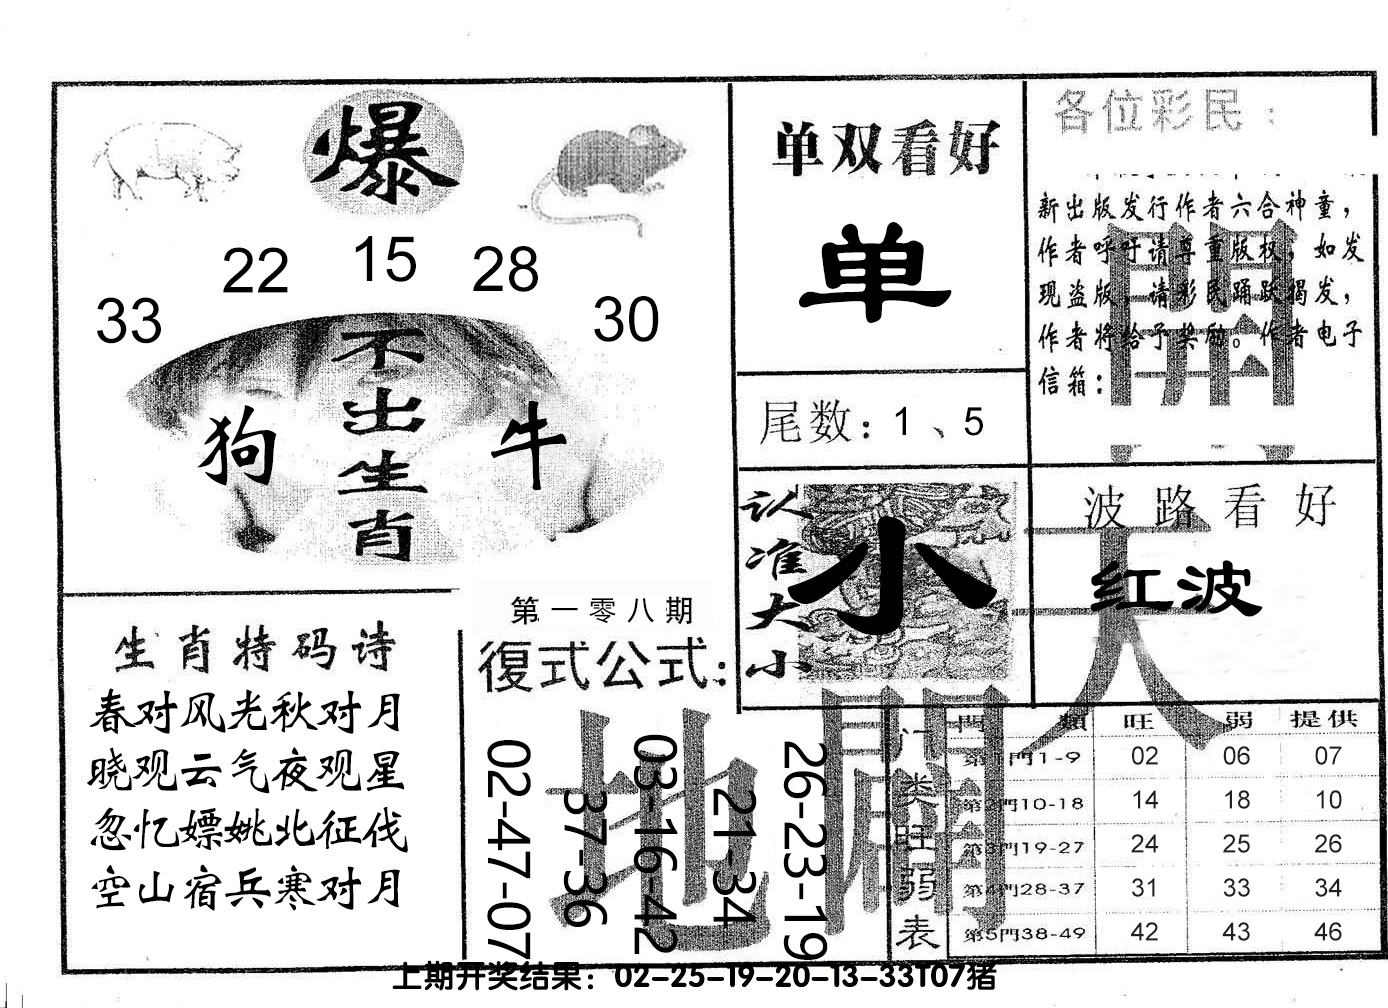 爆
33 22 15 28 30
不出生肖
狗 牛
单双看好
单
尾数：1、5
各位彩民：
新出版发行作者六合神童，
作者呼吁请尊重版权，如发
现盗版，请彩民踊跃揭发，
作者将给予奖励。作者电子
信箱：
認准大小
小
波路看好
红波
天
開
地
闢
生肖特码诗
春对风光秋对月
晓观云气夜观星
忽忆嫖姚北征伐
空山宿兵寒对月
第一零八期
復式公式：
02-47-07
37-36
03-16-42
21-34
26-23-19
门类旺弱表
門類 旺 弱 提供
第1門1-9 02 06 07
第2門10-18 14 18 10
第3門19-27 24 25 26
第4門28-37 31 33 34
第5門38-49 42 43 46
上期开奖结果：02-25-19-20-13-33T07猪